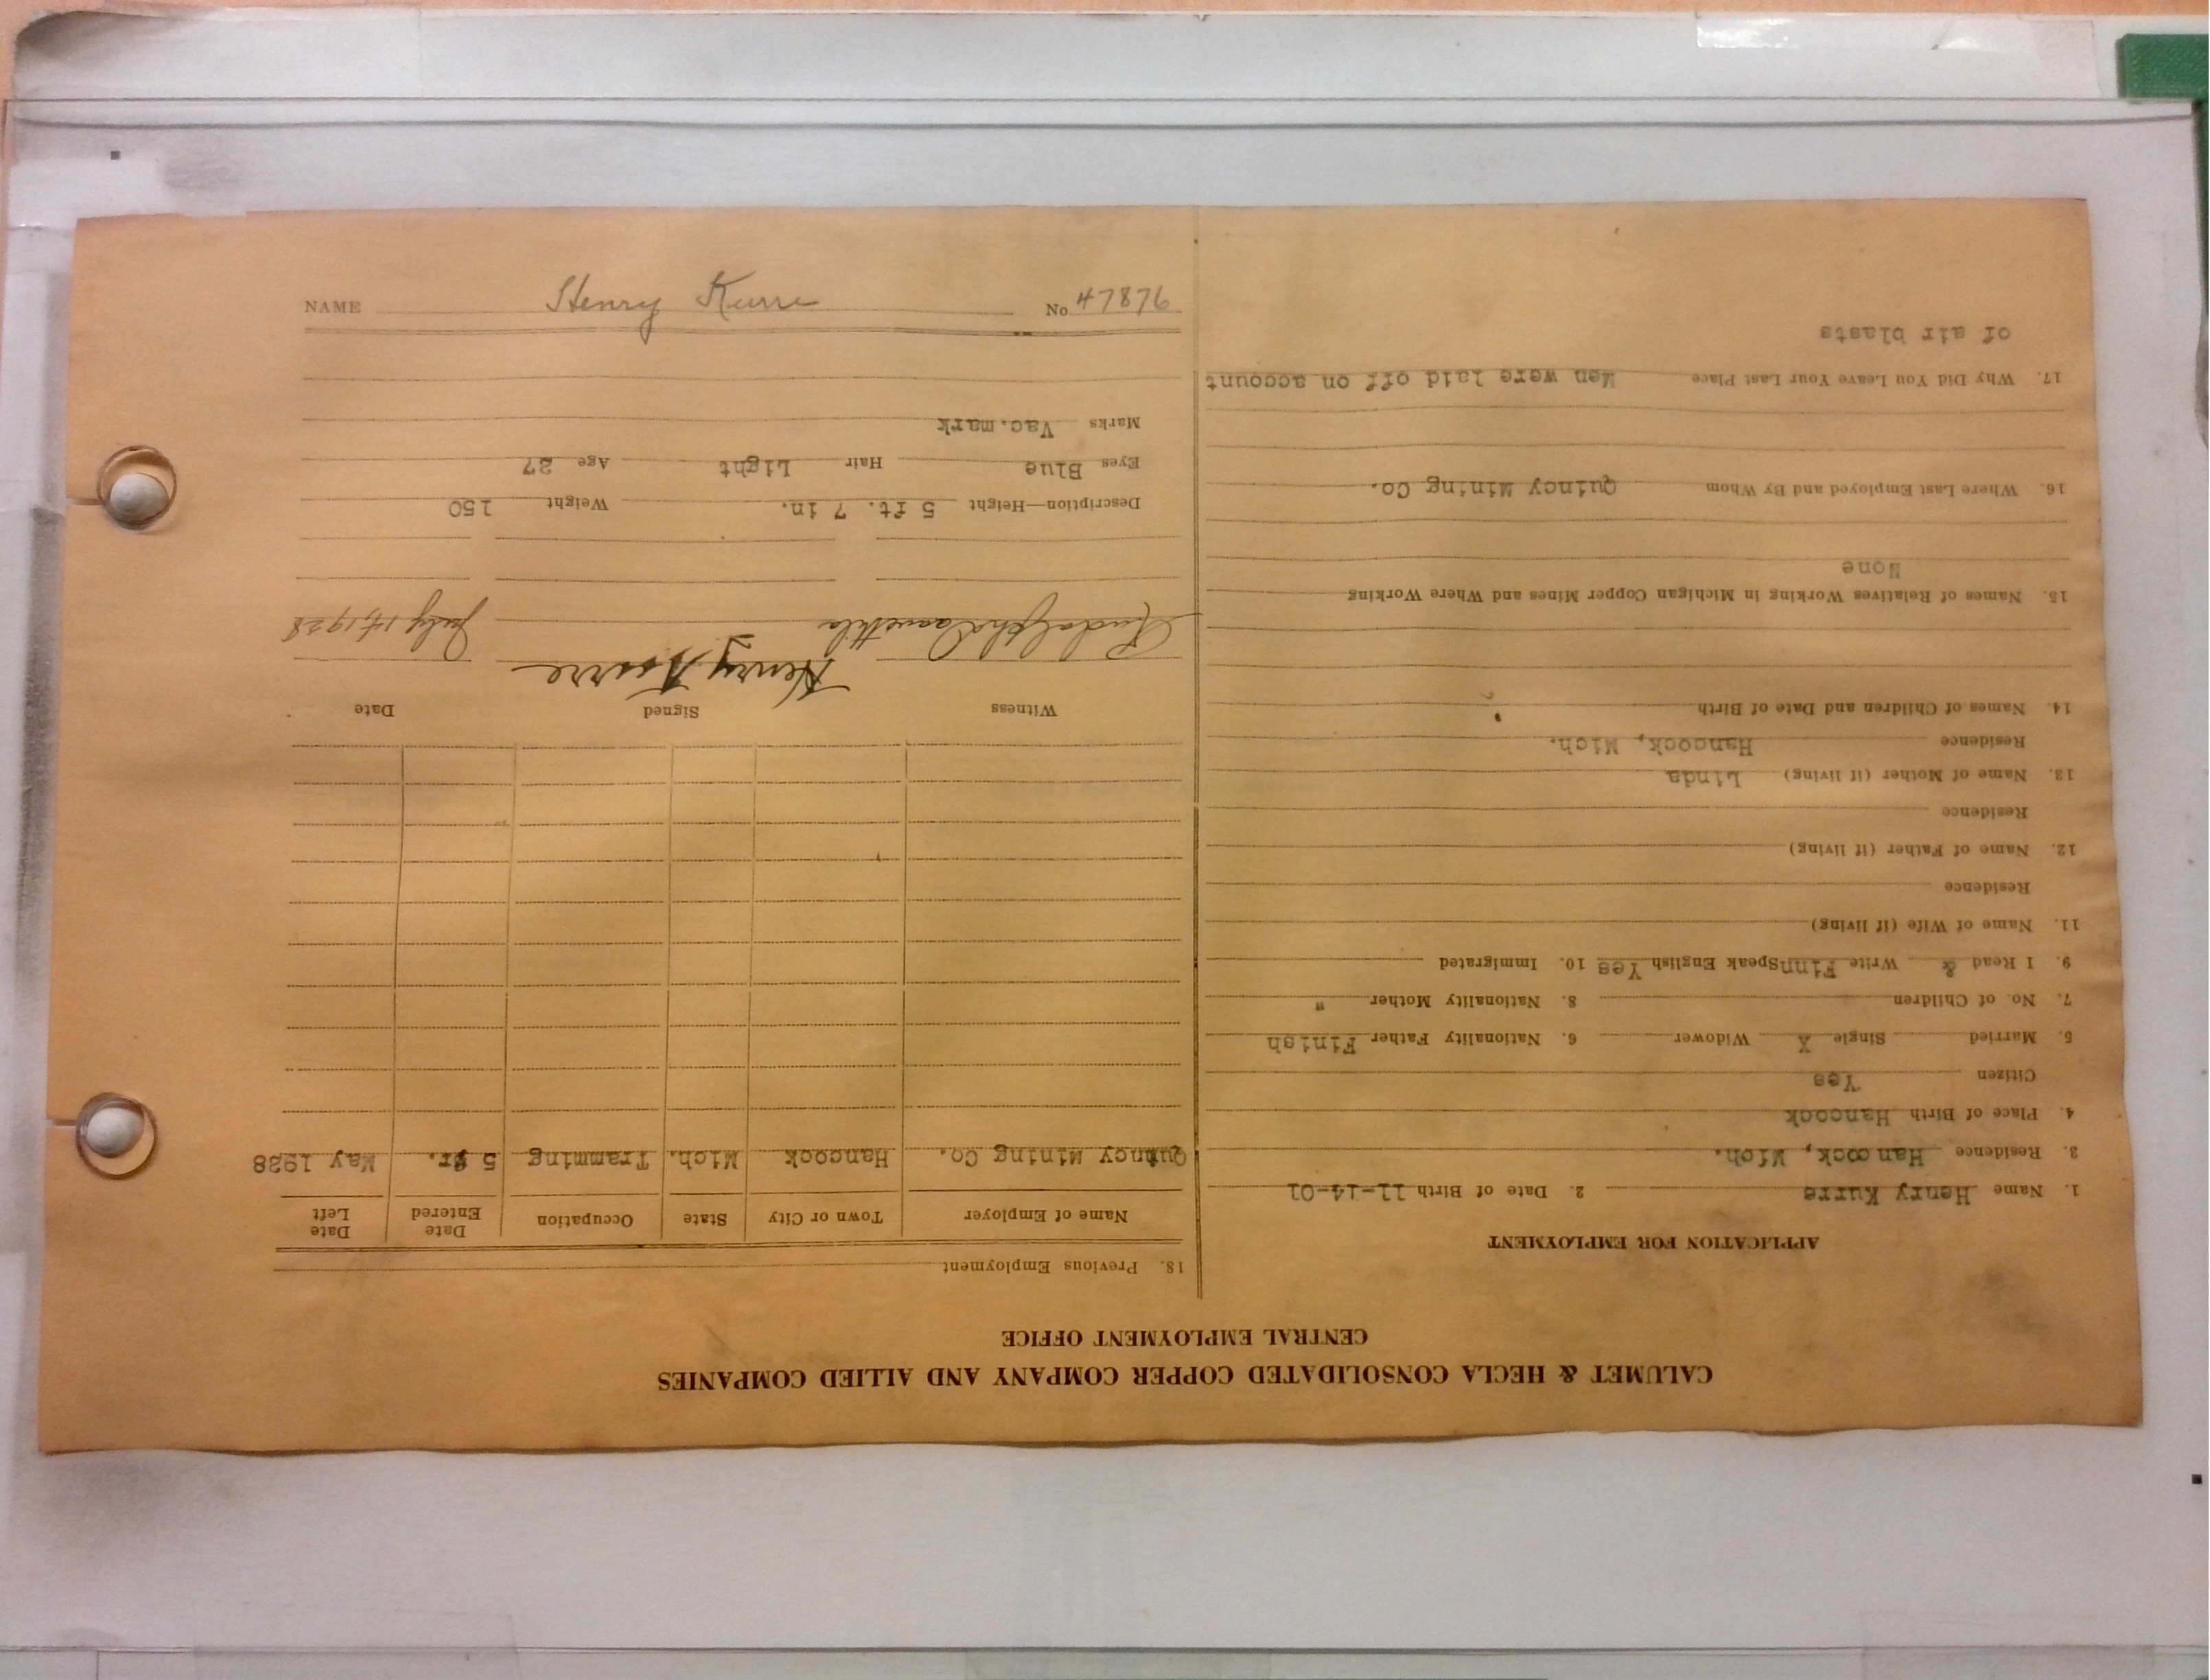 CALUMET & HECLA CONSOLIDATED COPPER COMPANY AND ALLIED COMPANIES
CENTRAL EMPLOYMENT OFFICE
APPLICATION FOR EMPLOYMENT
1. Name Henry Kurre 2. Date of Birth 11-14-01
3. Residence Hancock, Mich.
4. Place of Birth Hancock
Citizen Yes
5. Married Single X Widower 6. Nationality Father Finish
7. No. of Children 8. Nationality Mother "
9. I Read & Write Finn Speak English Yes 10. Immigrated
11. Name of Wife (if living)
Residence
12. Name of Father (if living)
Residence
13. Name of Mother (if living) Linda
Residence Hancock, Mich.
14. Names of Children and Date of Birth
15. Names of Relatives Working in Michigan Copper Mines and Where Working
None
16. Where Last Employed and By Whom Quincy Mining Co.
17. Why Did You Leave Your Last Place Men were laid off on account
of air blasts
18. Previous Employment
Name of Employer Town or City State Occupation Date Entered Date Left
Quincy Mining Co. Hancock Mich. Tramming 5 yr. May 1928
Witness Signed Date
Henry Kurre
Rudolph July 14, 1928
Description—Height 5 ft. 7 in. Weight 150
Eyes Blue Hair Light Age 27
Marks Vac.mark
NAME Henry Kurre No 47876